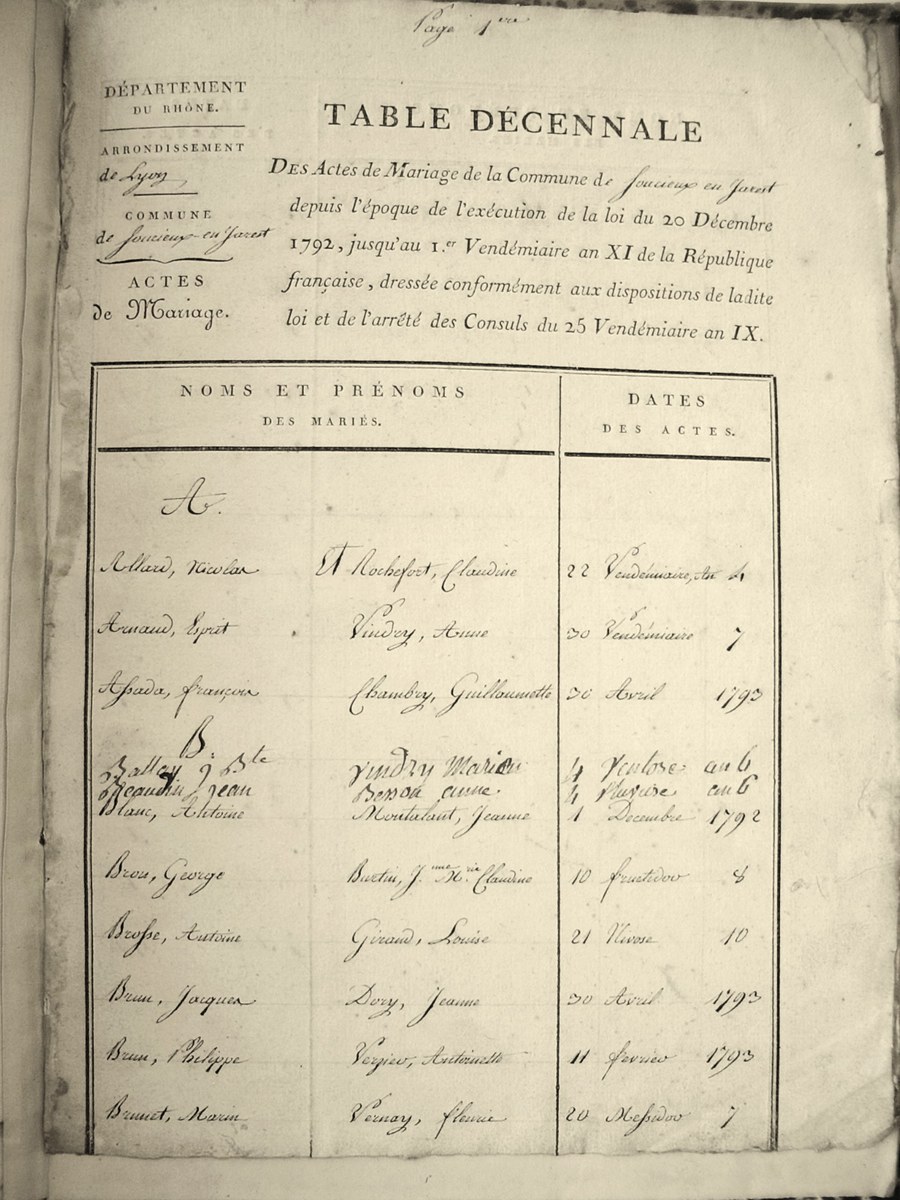 Page 1ere
DÉPARTEMENT
DU RHÔNE.
ARRONDISSEMENT
de Lyon
COMMUNE
de Soucieux en Jarest
ACTES
de Mariage.
TABLE DÉCENNALE
DES Actes de Mariage de la Commune de Soucieux en Jarest
depuis l'époque de l'exécution de la loi du 20 Décembre
1792, jusqu'au 1.er Vendémiaire an XI de la République
française, dressée conformément aux dispositions de ladite
loi et de l'arrêté des Consuls du 25 Vendémiaire an IX.
NOMS ET PRÉNOMS
DES MARIÉS.
DATES
DES ACTES.
A.
Allard, Nicolas Et Rochefort, Claudine 22 Vendémiaire, An 4
Arnaud, Esprit Vindry, Anne 30 Vendémiaire 7
Assada, françois Chambry, Guillaumette 30 Avril 1793
B.
J Bte Vindry Marion 4 Ventose an 6
Jean Besson anne. 4 Pluviose an 6
Blanc, Antoine Montalant, Jeanne 1 Decembre 1792
Brou, George Burtin, J.nne M.rie Claudine 10 fructidor 8
Brosse, Antoine Giraud, Louise 21 Nivose 10
Brun, Jacques Dory, Jeanne 30 Avril 1793
Brun, Philippe Vergier, Antoinette 11 fevrier 1793
Brunet, Marin Vernay, fleurie 20 Messidor 7